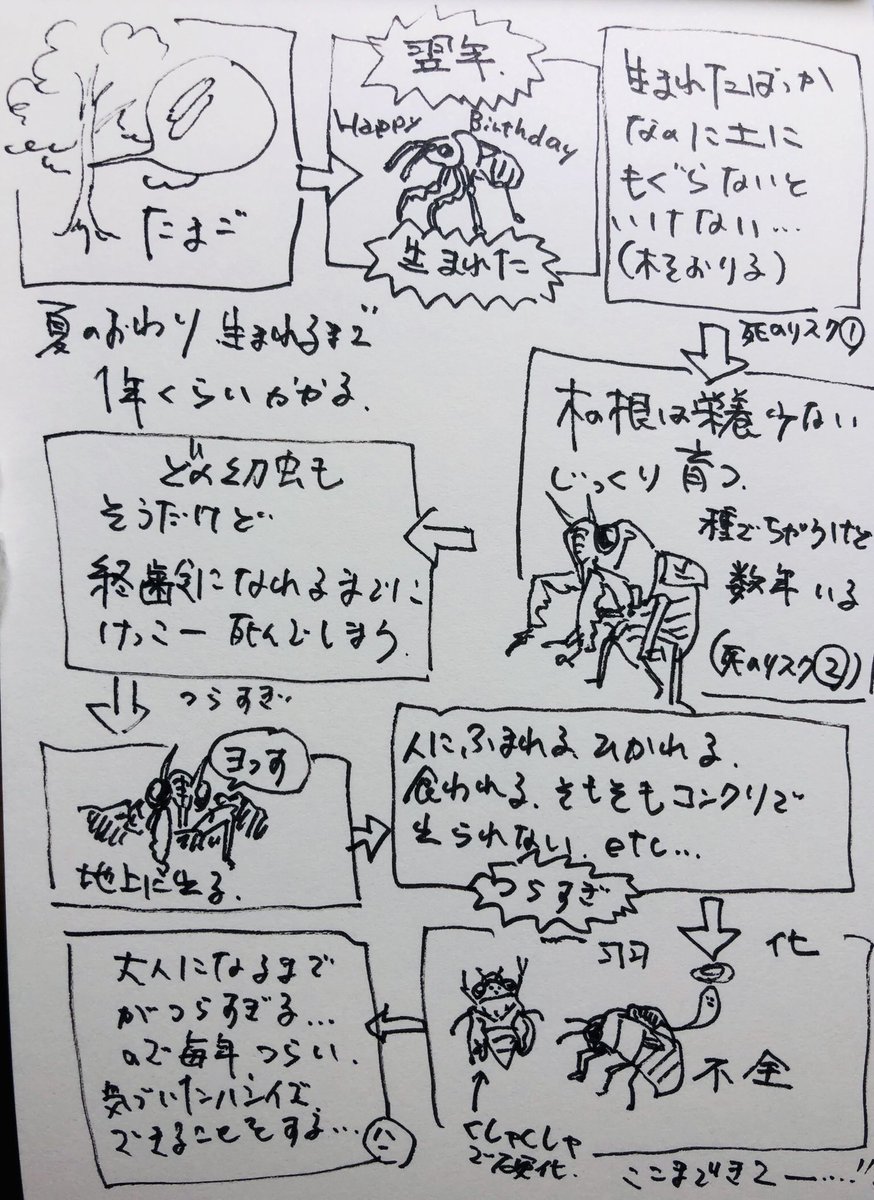 たまご
夏のおわり 生まれるまで
1年くらいかかる.
翌年.
Happy Birthday
生まれた
生まれたばっか
なのに土に
もぐらないと
いけない…
(木をおりる)
死のリスク①
木の根は栄養少ない
じっくり育つ.
種でちがうけど
数年いる
(死のリスク②)
どの幼虫も
そうだけど
終齢になれるまでに
けっこー死んでしまう.
つらすぎ
ヨっす
地上に出る.
人にふまれる、ひかれる、
食われる、そもそもコンクリで
出られない、etc…
つらすぎ
羽 化
不全
くしゃくしゃ
で硬化.
ここまできてー……!!
大人になるまで
がつらすぎる…
ので毎年つらい.
気づいたハンイで、
できることをする…